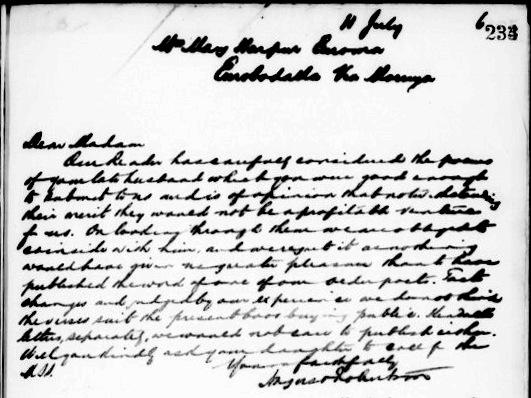 11 July 6
233
Mrs Mary Harpur Euroma
Eurobodalla Via Moruya
Dear Madam
Our Reader has carefully considered the poems
of your late husband which you were good enough
to submit to us and is of opinion that notwithstanding
their merit they would not be a profitable venture
for us. On looking through them we are obliged to
coincide with him, and we regret it as nothing
would have given us greater pleasure than to have
published the work of one of our older poets. Taste
changes and judging by our experience we do not think
the verses suit the present book buying public.
letters, separately, we would not care to publish either.
Will you kindly ask your daughter to call for the
MSS.
Yours faithfully
Angus & Robertson